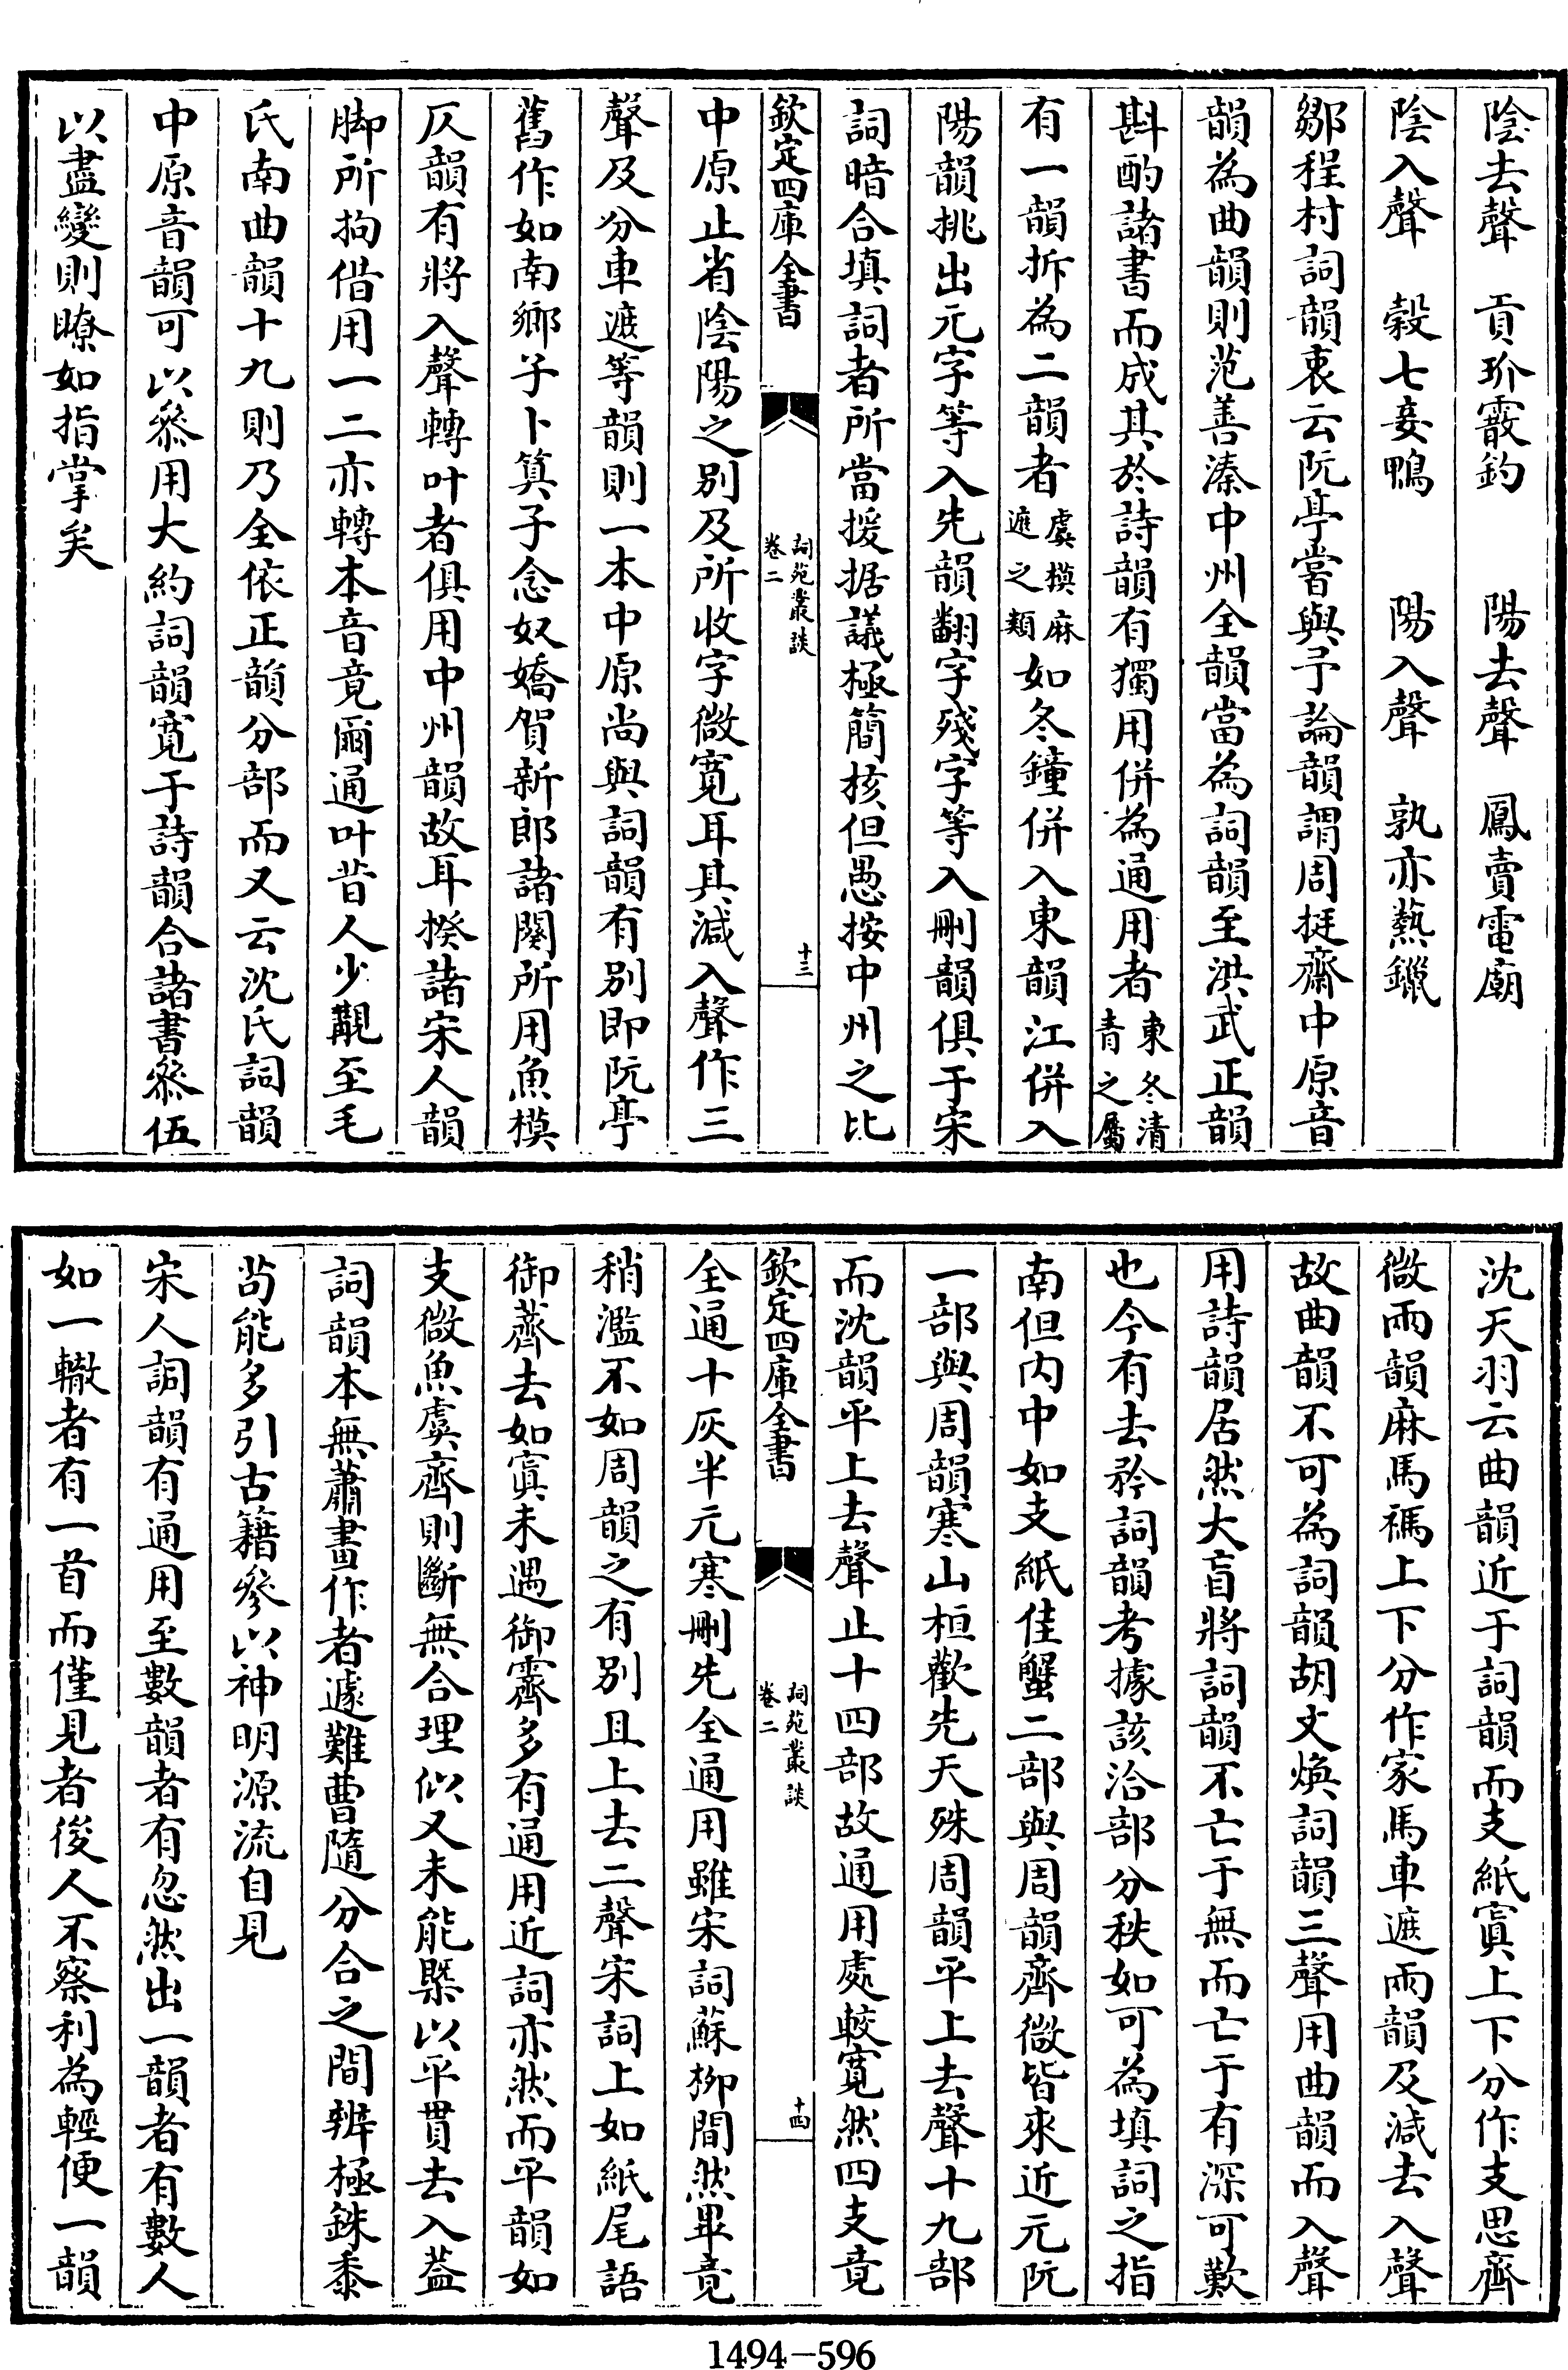 陰去聲　貢玠霰釣　陽去聲　鳳賣電廟
陰入聲　穀七妾鴨　陽入聲　孰亦爇鑞
鄒程村詞韻衷云阮亭嘗與予論韻謂周挺齋中原音
韻為曲韻則范善溱中州全韻當為詞韻至洪武正韻
斟酌諸書而成其於詩韻有獨用併為通用者東冬清青之屬
有一韻拆為二韻者虞模麻遮之類如冬鐘併入東韻江併入
陽韻挑出元字等入先韻翻字殘字等入刪韻俱于宋
詞暗合填詞者所當援据議極簡核但愚按中州之比
欽定四庫全書　詞苑叢談卷二　十三
中原止省陰陽之別及所收字微寬耳其減入聲作三
聲及分車遮等韻則一本中原尚與詞韻有別即阮亭
舊作如南鄉子卜算子念奴嬌賀新郎諸闋所用魚模
仄韻有將入聲轉叶者俱用中州韻故耳揆諸宋人韻
脚所拘借用一二亦轉本音竟爾通叶昔人少覯至毛
氏南曲韻十九則乃全依正韻分部而又云沈氏詞韻
中原音韻可以叅用大約詞韻寬于詩韻合諸書叅伍
以盡變則瞭如指掌矣
沈天羽云曲韻近于詞韻而支紙寘上下分作支思齊
微兩韻麻馬禡上下分作家馬車遮兩韻及減去入聲
故曲韻不可為詞韻胡文煥詞韻三聲用曲韻而入聲
用詩韻居然大盲將詞韻不亡于無而亡于有深可歎
也今有去矜詞韻考據該洽部分秩如可為填詞之指
南但内中如支紙佳蟹二部與周韻齊微皆來近元阮
一部與周韻寒山桓歡先天殊周韻平上去聲十九部
而沈韻平上去聲止十四部故通用處較寬然四支竟
欽定四庫全書　詞苑叢談卷二　十四
全通十灰半元寒刪先全通用雖宋詞蘇柳間然畢竟
稍濫不如周韻之有別且上去二聲宋詞上如紙尾語
御薺去如寘未遇御霽多有通用近詞亦然而平韻如
支微魚虞齊則斷無合理似又未能槩以平貫去入葢
詞韻本無蕭畫作者遽難曹隨分合之間辨極銖黍
茍能多引古籍參以神明源流自見
宋人詞韻有通用至數韻者有忽然出一韻者有數人
如一轍者有一首而僅見者後人不察利為輕便一韻
1494-596